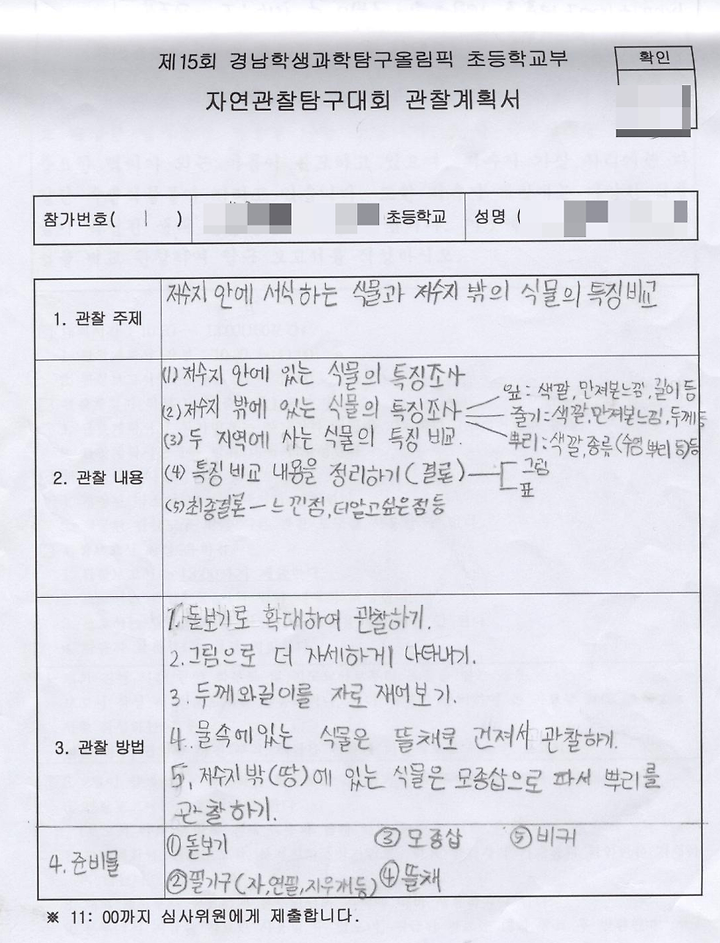 제15회 경남학생과학탐구올림픽 초등학교부
확인
자연관찰탐구대회 관찰계획서
참가번호( 1 ) 초등학교 성명 (
1. 관찰 주제
저수지 안에 서식하는 식물과 저수지 밖의 식물의 특징비교
2. 관찰 내용
(1) 저수지 안에 있는 식물의 특징조사
(2) 저수지 밖에 있는 식물의 특징조사
잎: 색깔, 만져본느낌, 길이 등
줄기: 색깔, 만져본느낌, 두께등
뿌리: 색깔, 종류 (수염 뿌리 등)등
(3) 두 지역에 사는 식물의 특징 비교.
(4) 특징 비교 내용을 정리하기 (결론)
그림
표
(5) 최종결론 - 느낀점, 더알고싶은점 등
3. 관찰 방법
1. 돋보기로 확대하여 관찰하기.
2. 그림으로 더 자세하게 나타내기.
3. 두께와길이를 자로 재어보기.
4. 물속에있는 식물은 뜰채로 건져서 관찰하기.
5. 저수지 밖(땅)에 있는 식물은 모종삽으로 파서 뿌리를
관찰하기.
4. 준비물
① 돋보기 ③ 모종삽 ⑤ 비커
② 필기구(자,연필,지우개등) ④ 뜰채
※ 11: 00까지 심사위원에게 제출합니다.